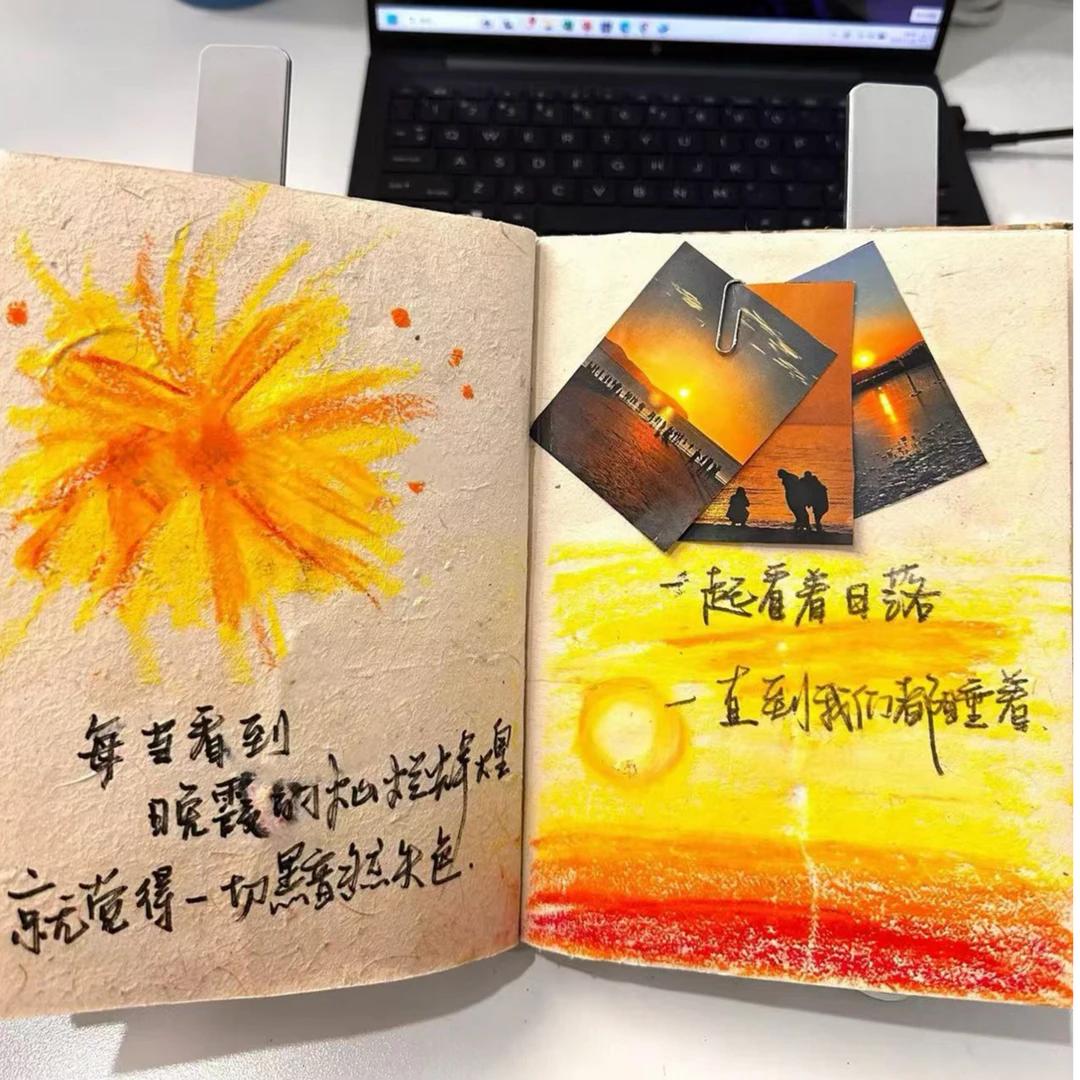 每当看到
晚霞的灿烂辉煌
就觉得一切黯然失色.
一起看着日落
一直到我们都睡着.
Q W E R T Y U I O P
A S D F G H J K L
Z X C V B N M